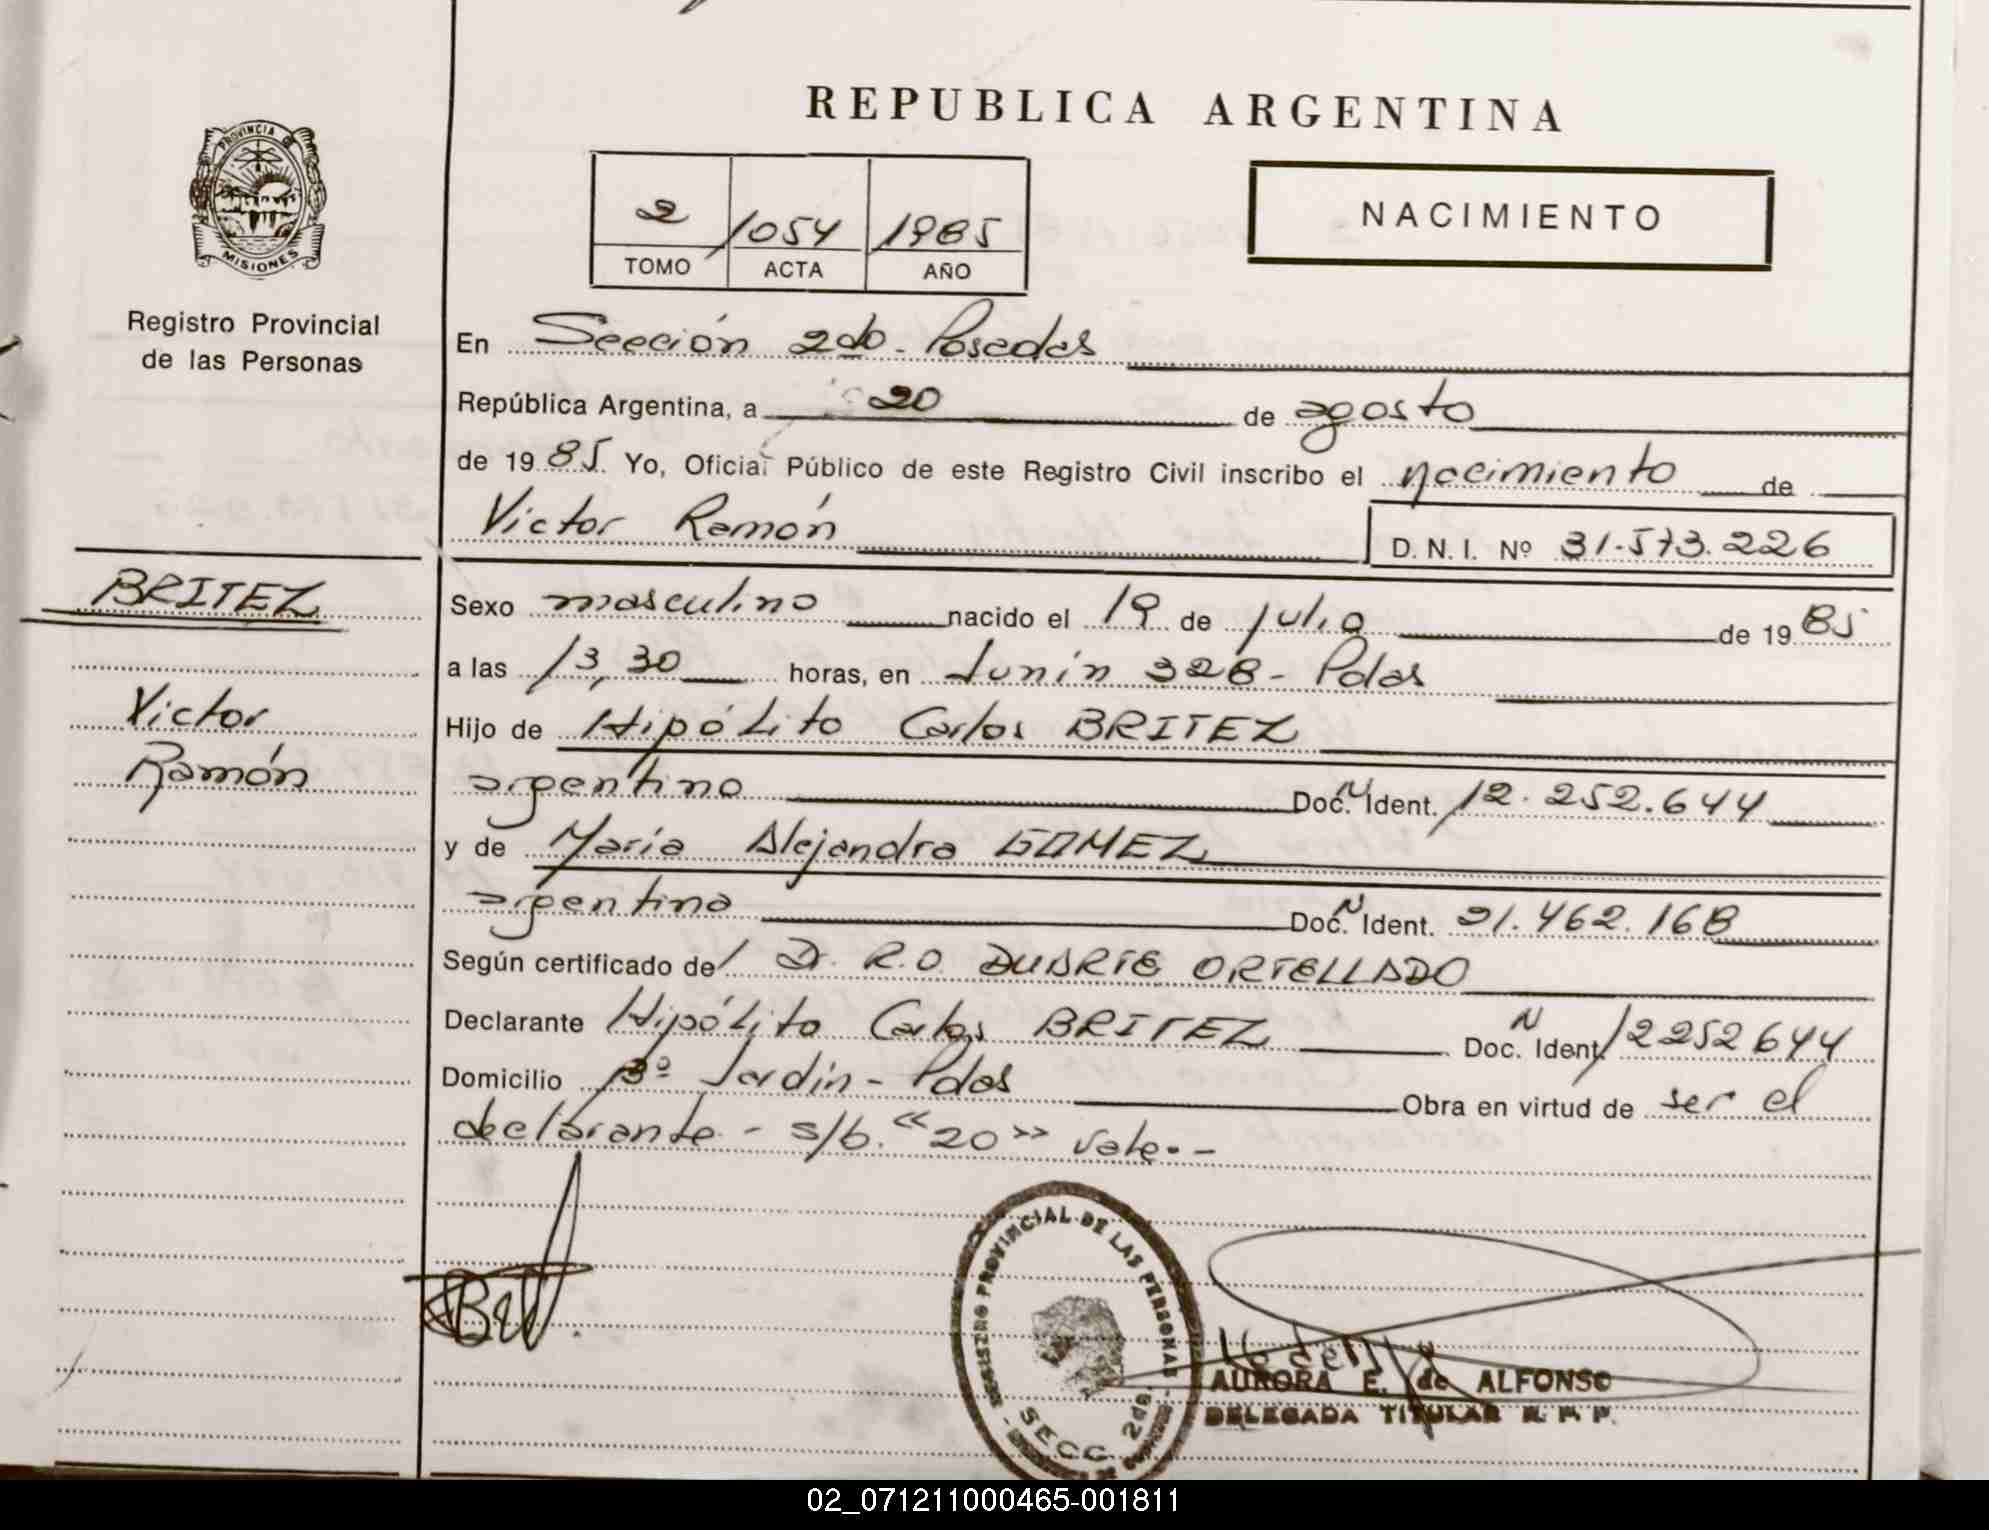 REPUBLICA ARGENTINA
PROVINCIA DE
MISIONES
Registro Provincial
de las Personas
2 1054 1985
TOMO ACTA AÑO
NACIMIENTO
En Sección 2do - Posadas
República Argentina, a 20 de agosto
de 1985. Yo, Oficial Público de este Registro Civil inscribo el nacimiento de
Victor Ramón D. N. I. Nº 31.573.226
BRITEZ
Victor
Ramón
Sexo masculino nacido el 19 de julio de 1985
a las 13,30 horas, en Junín 328 - Pdas
Hijo de Hipólito Carlos BRITEZ
argentino Doc. N Ident. 12.252.644
y de María Alejandra GOMEZ
argentina Doc. N Ident. 21.462.168
Según certificado de Dr. R.O. DUARTE ORTELLADO
Declarante Hipólito Carlos BRITEZ Doc. N Ident. 12252644
Domicilio Bº Jardín - Pdas Obra en virtud de ser el
declarante - s/b. «20» vale.-
REGISTRO PROVINCIAL DE LAS PERSONAS
SECC. 2da.
AURORA E. de ALFONSO
DELEGADA TITULAR R. P. P.
02_071211000465-001811